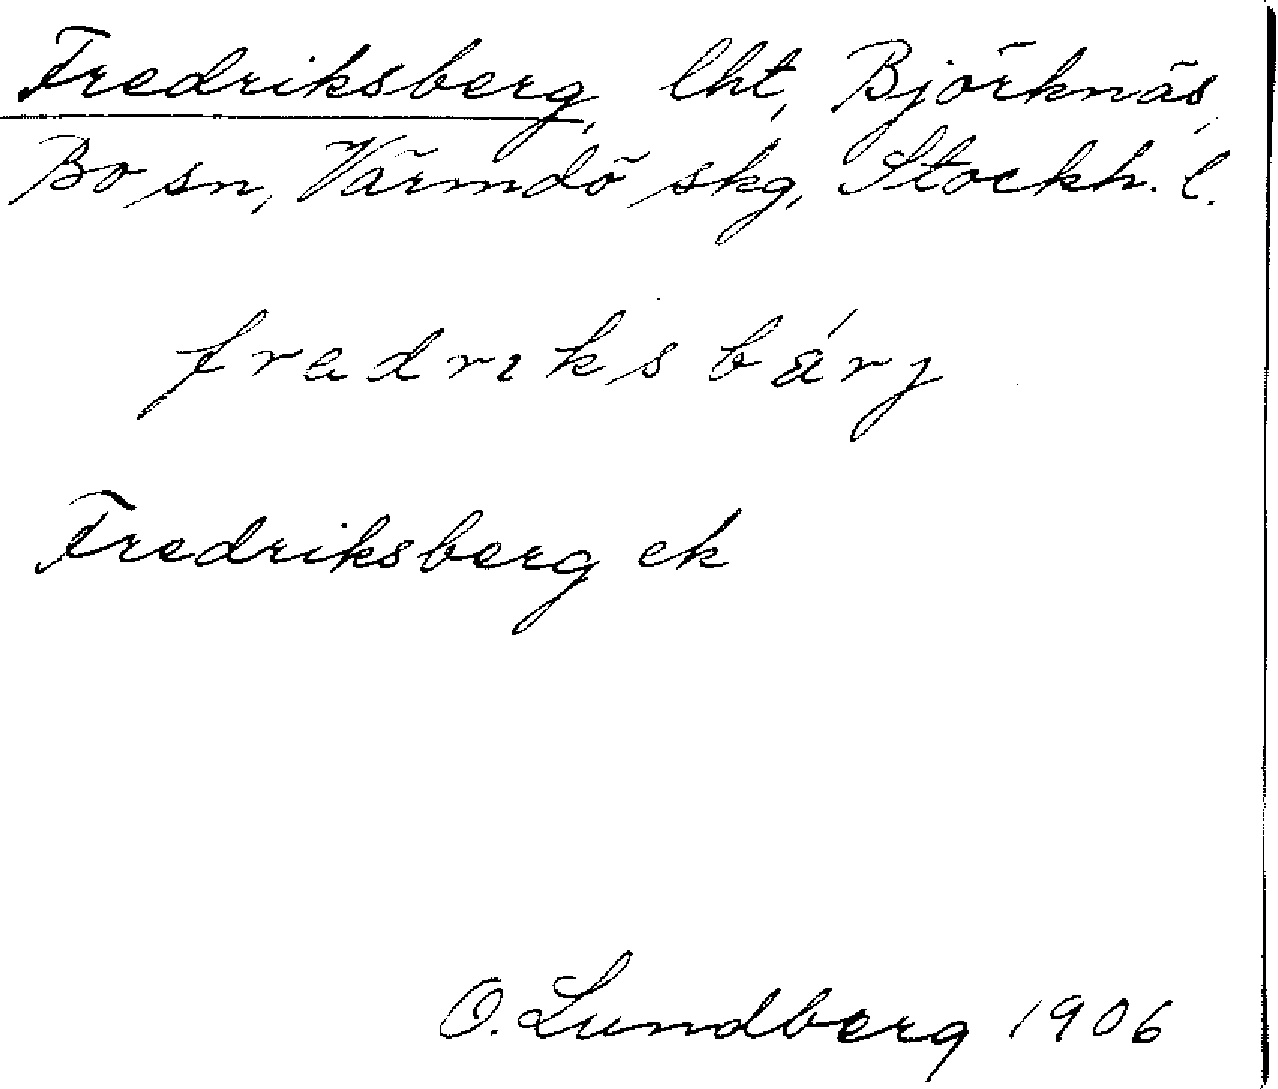 Fredriksberg, lht, Björknäs,
Bo sn, Värmdö skg, Stockh. l.
fredriksbárj
Fredriksberg ek
O. Lundberg 1906